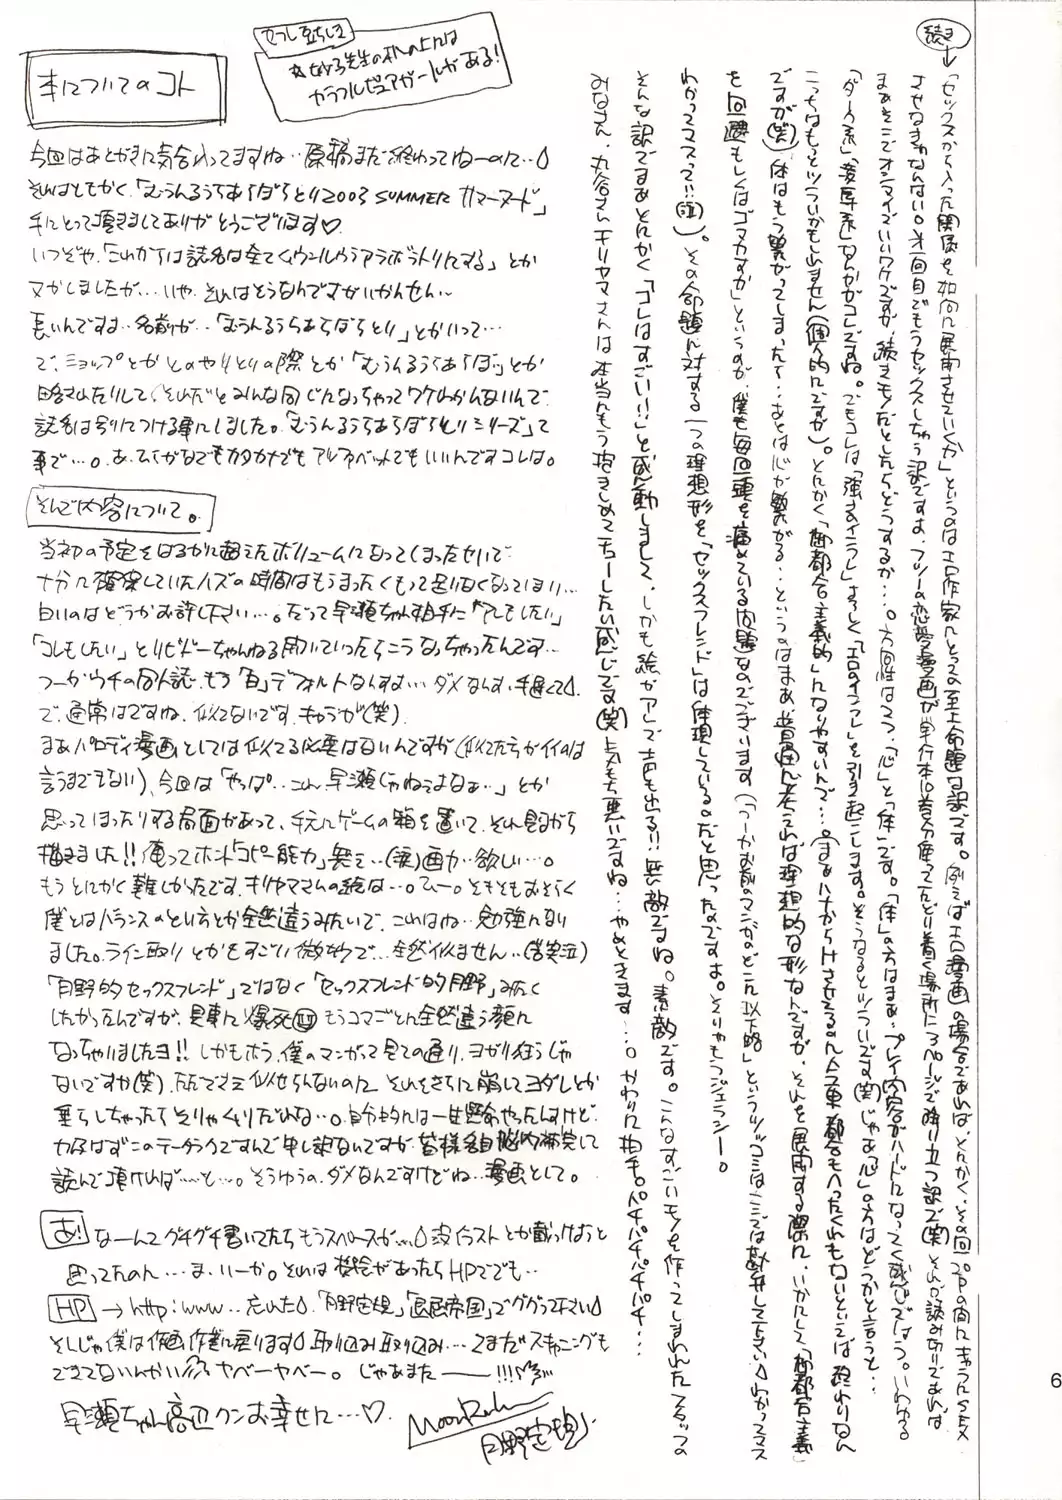 続き
↓「セックスから入った関係を如何に展開させていくか」というのはエロ作家にとって至上命題な訳です。例えばエロ漫画の場合であれば、とにかく、その回20Pの間にキャラにSEX
させなきゃなんない。第一回目でもうセックスしちゃう訳ですよ、フツーの恋愛漫画が単行本10巻分使ってたどり着く場所に3ページで降り立つ訳で(笑)それが読み切りであれば
まあそこでオシマイでいいワケですが、続きモノだとしたらどうするか…。方向性は2つ、「心」と「体」です。「体」の方はまぁ、プレイ内容がハードになってく感じでしょう。いわゆる
「ダーク系」「凌辱系」なんかがコレですね。でもコレは「強さのインフレ」よろしく「エロのインフレ」を引き起こします。そうなるとツライです(笑)じゃあ「心」の方はどうかと言うと…
こっちはもっとツライかもしれません(個人的にですが)。とにかく「御都合主義的」になりやすいんで…。(まあハナから
ですが(笑)体はもう繋がってしまったて…あとは心が繋がる…というのはまあ、普通に考えれば理想的な形なんですが、それを展開する際に、いかにして「御都合主義」
を回避もしくはゴマかすか」というのが、僕も毎回頭を痛めている問題なのでございます(「つーかお前のマンガのどこが以下略」というツッコミはここでは勘弁して下さい わかってマス
わかってマスって!!(泣))。その命題に対する一つの理想形を「セックスフレンド」は体現している。だと思ったのですよ。そりゃもうジェラシー。
そんな訳でまあとにかく「コレはすごい!!」と感動しまして、しかも絵がアレで声も出る!!無敵ですね。素敵です。こんなすごいモノを作ってしまわれたスタッフの
みなさん、丸谷さんキリヤマさんは本当にもう抱きしめてチューしたい感じです(笑)気もち悪いですね…やめときます…。かわりに拍手。パチパチパチパチパチ…
本についてのコト
カラフルピュアガールがある!
今回はあとがきに気合入ってますね…原稿まだ終わってねーのに…
それはともかく、「むうんるうらあらぼらとり2003 SUMMER サマーヌード」
手にとって頂きましてありがとうございます♡
いつぞや、「これからは誌名は全てムウンルウラアラボラトリにする」とか
ヌかしましたが…いや、それはそうなんですがいかんせん〜
長いんですよ…名前が…「むうんるうらあらぼらとり」とかいって…
で、ショップとかとのやりとりの際とか「むうんるうらあらぼ」とか
略されたりして、それだとみんな同じになっちゃってワケわかんないんで
誌名は別につける事にしました。「むうんるうらあらぼらとりシリーズ」て
事で…。あ、ひらがなでもカタカナでもアルファベットでもいいんですコレは。
そんで内容について。
当初の予定をはるかに超えたボリュームになってしまったせいで
十分に確保していたハズの時間はもうまったくもって足りなくなってしまい…
白いのはどうかお許し下さい…。だって早瀬ちゃん相手に「アレもしたい」
「コレもしたい」とリビドーちゃんねる開いていったらこうなっちゃったんです…
つーかウチの同人誌、もう「白」デフォルトなんすよ…ダメなんす、手遅くて
で、通常はですね、似てないです、キャラが(笑)
まあパロディ漫画としては似てる必要はないんですが(似てた方がイイのは
言うまでもない)、今回は「やっぱ…こんな早瀬じゃねぇよなぁ…」とか
思ってしまったりする局面があって、手元にゲームの箱を置いて、それ見ながら
描きました!!俺ってホント「コピー能力」無ぇ…(涙)画力…欲しい…。
もうとにかく難しかったです、キリヤマさんの絵は…。ひー。そもそもおそらく
僕とはバランスのとり方とか全然違うみたいで、これはね…勉強になり
ました。ライン取りとかもすごい微妙で…全然似ません…(苦笑泣)
「月野的セックスフレンド」ではなく「セックスフレンド的月野」みたく
したかったんですが、見事に爆死(泣)もうコマごとに全然違う顔に
なっちゃいましたヨ!!しかもホラ、僕のマンガって見ての通り、ヨガリ狂うじゃ
ないですか(笑)、ただでさえ似せらんないのに、それをさらに崩してヨダレとか
垂らしちゃったらそりゃムリだわな…。自分的には一生懸命やったんすけど、
力及ばずこのテータラクですんで申し訳ないですが、皆様各自脳内補完して
読んで頂ければ……と…。そうゆうの、ダメなんですけどね…漫画として。
あ! なーんてグチグチ書いてたらもうスペースが… 没イラストとか載っけようと
思ってたのに…ま、いーか。それは機会があったらHPででも…
HP → http:www…忘れた 「月野定規」「退屈帝国」でググって下さい
そんじゃ僕は作画作業に戻ります 取り込み取り込み…てまだスキャニングも
できてないんかい ヤベーヤベー。じゃあまた――!!!
早瀬ちゃん高辺クンお幸せに…♡
Moon Ruler
月野定規
6